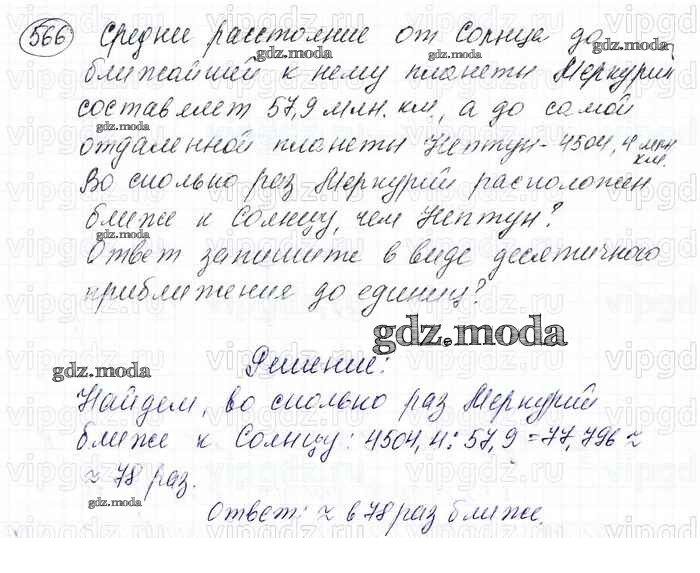 566 Среднее расстояние от Солнца до
ближайшей к нему планеты Меркурий
составляет 57,9 млн. км., а до самой
отдаленной планеты Нептун - 4504,4 млн
км.
Во сколько раз Меркурий расположен
ближе к Солнцу, чем Нептун?
Ответ запишите в виде десятичного
приближение до единиц?
gdz.moda
Решение:
Найдем, во сколько раз Меркурий
ближе к Солнцу: 4504,4 : 57,9 = 77,796 ≈
≈ 78 раз.
Ответ: ≈ в 78 раз ближе.